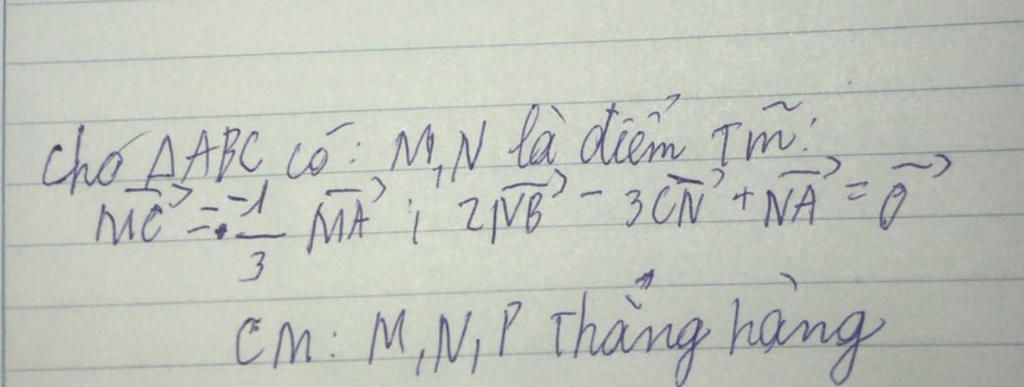 Cho ΔABC có: M,N là điểm Tm~:
MC→ = -1/3 MA→ ; 2NB→ - 3CN→ + NA→ = 0→
CM: M,N,P Thẳng hàng